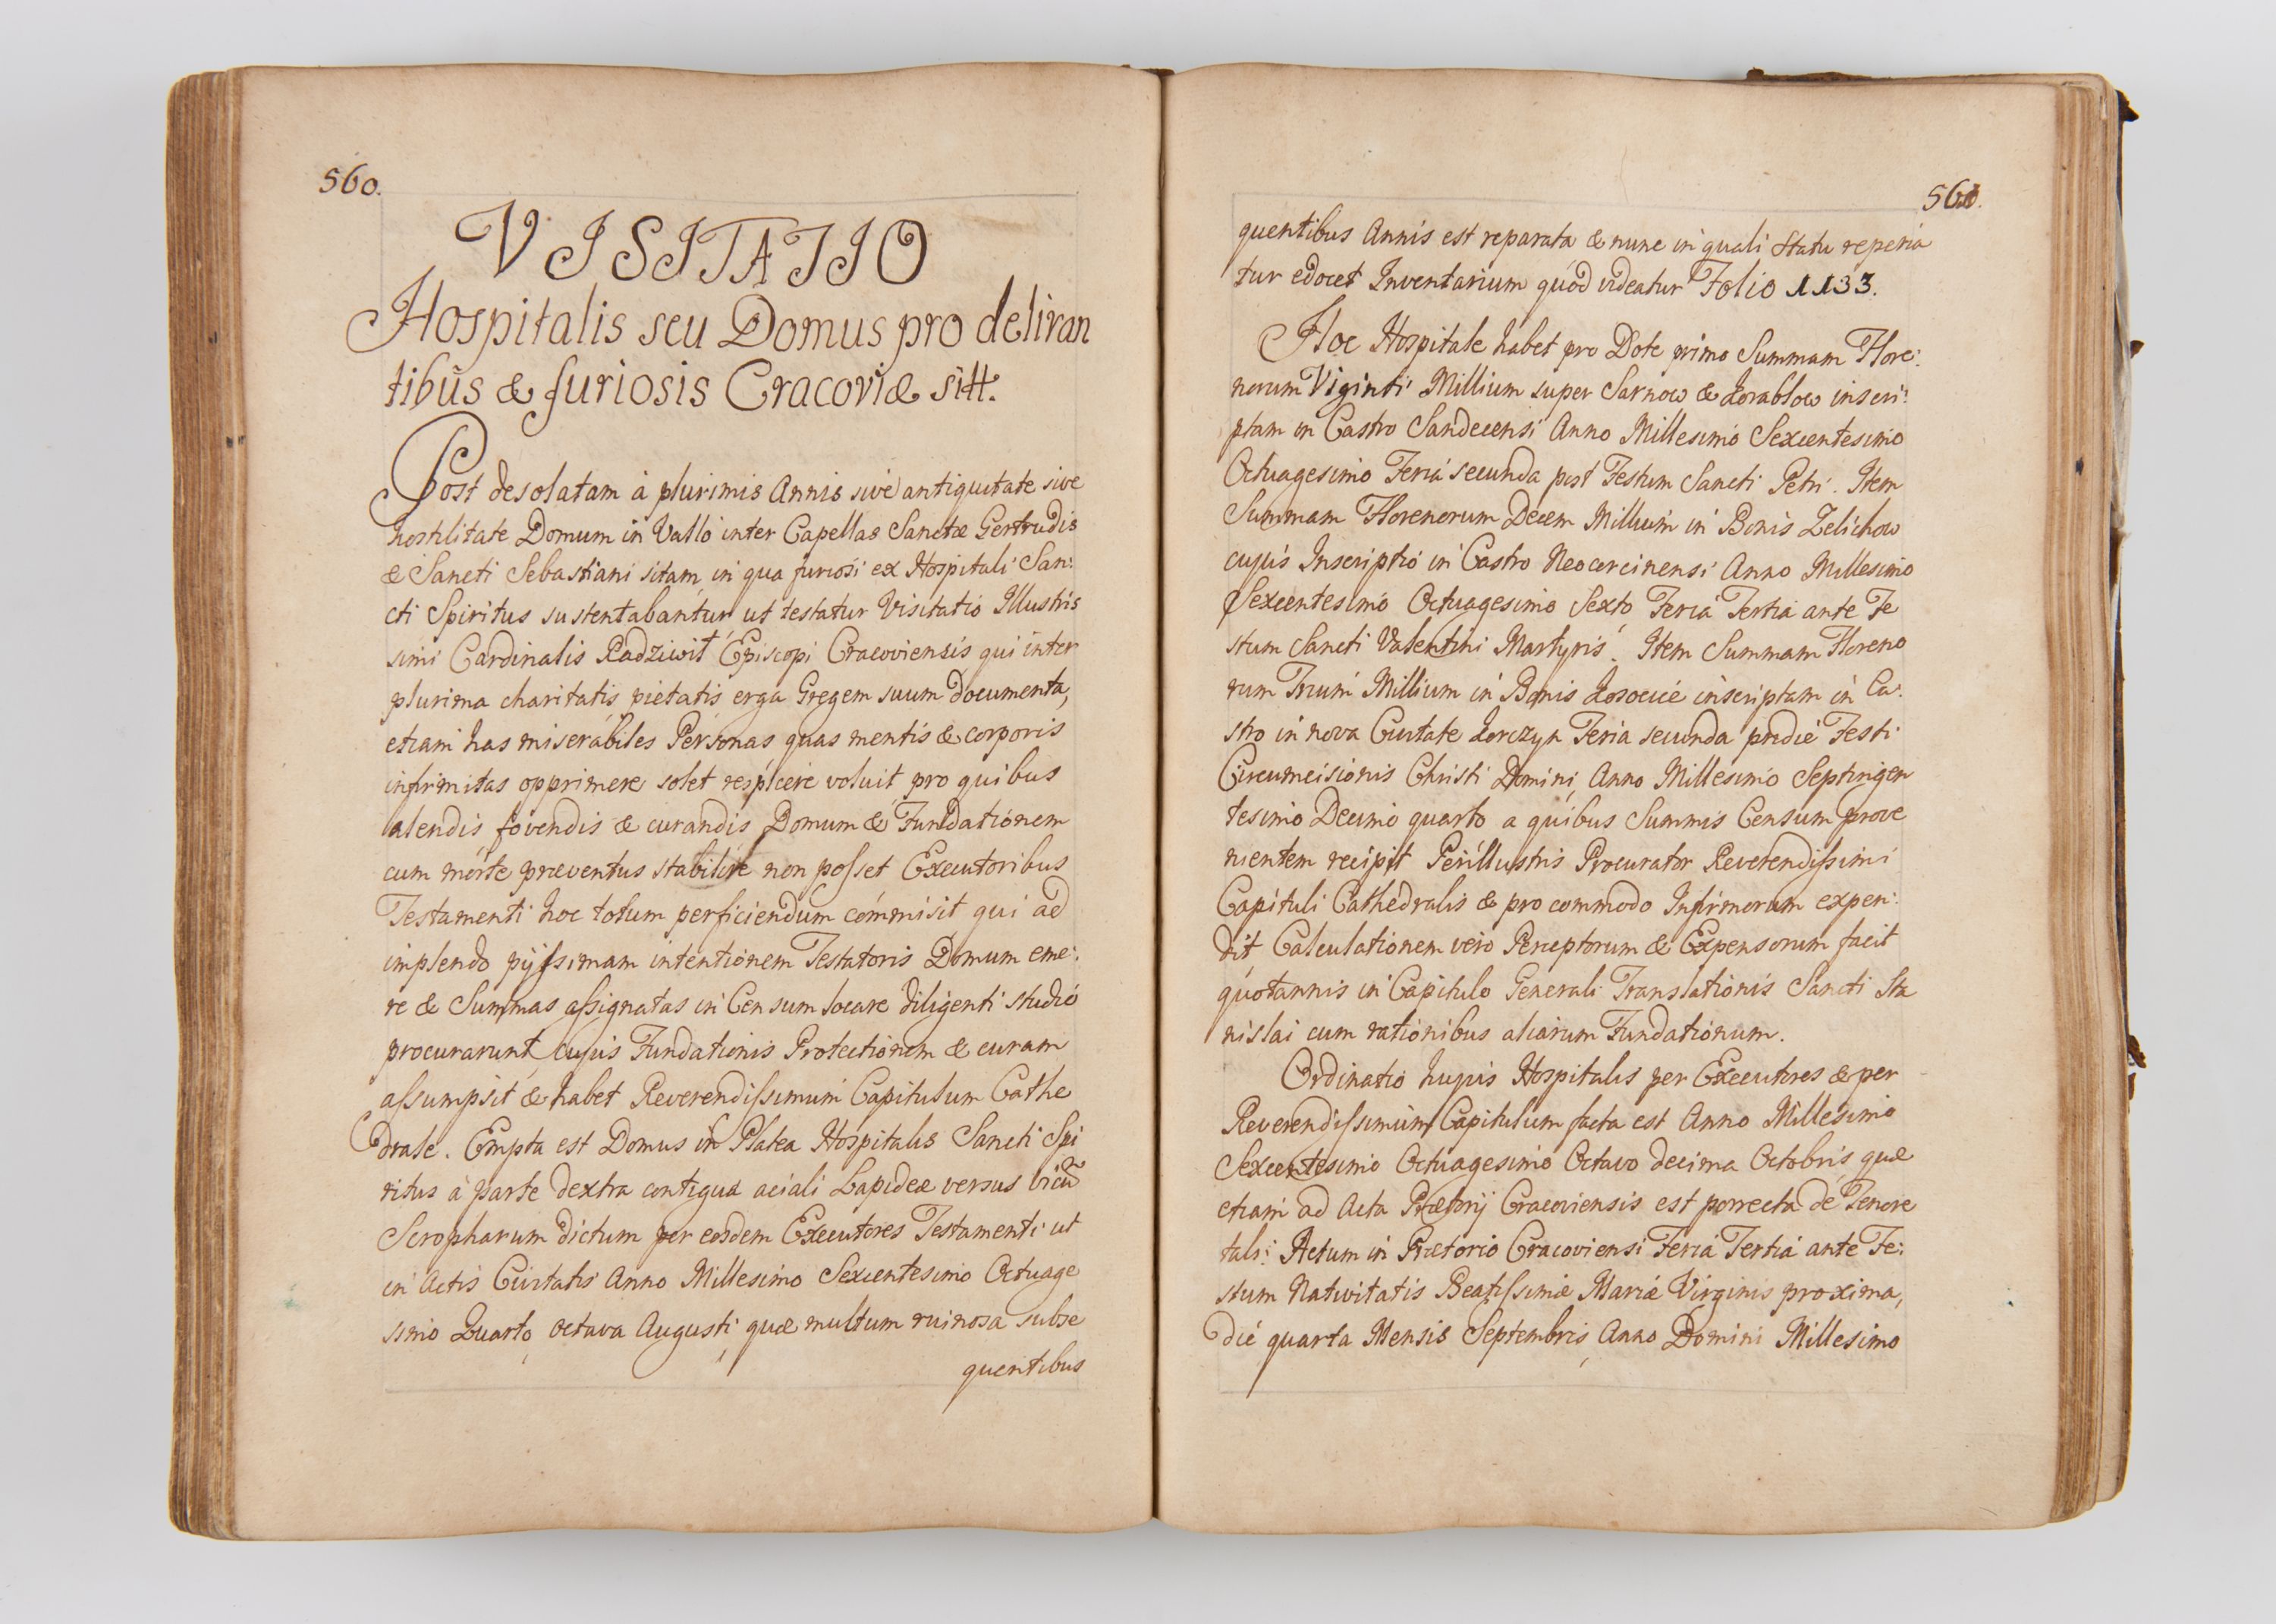 560.
VISITATIO
Hospitalis seu Domus pro deliran
tibus & furiosis Cracoviæ sitt.
Post desolatam à plurimis Annis sive antiquitate sive
hostilitate Domum in Vallo inter Capellas Sanctæ Gertrudis
& Sancti Sebastiani sitam, in qua furiosi ex Hospitali San:
cti Spiritus sustentabantur ut testatur Visitatio Illustris
simi Cardinalis Radziwił Episcopi Cracoviensis qui inter
plurima charitatis pietatis erga Gregem suum documenta,
etiam has miserabiles Personas quas mentis & corporis
infirmitas opprimere solet respicere voluit pro quibus
alendis fovendis & curandis Domum & Fundationem
cum morte præventus stabilire non posset Executoribus
Testamenti hoc totum perficiendum commisit, qui ad
implendo pijssimam intentionem Testatoris Domum eme:
re & Summas assignatas in Censum locare diligenti studio
procurarunt, cujus Fundationis Protectionem & curam
assumpsit & habet Reverendissimum Capitulum Cathe
drale. Empta est Domus in Platea Hospitalis Sancti Spi
ritus à parte dextra contigua aciali Lapideæ versus vicũ
Scropharum dictum per eosdem Executores Testamenti ut
in Actis Civitatis Anno Millesimo Sexcentesimo Octuage
simo Quarto, octava Augusti, quæ multum ruinosa subse
quentibus
561.
quentibus Annis est reparata & nunc in quali statu reperia
tur edocet Inventarium quod videatur Folio 1133.
Hoc Hospitale habet pro Dote primo Summam Flore:
norum Viginti Millium super Sarnow & Korablow inscri:
ptam in Castro Sandecensi Anno Millesimo Sexcentesimo
Octuagesimo Feria secunda post Festum Sancti Petri. Item
Summam Florenorum Decem Millium in Bonis Zelichow
cujus Inscriptio in Castro Neocorcinensi Anno Millesimo
Sexcentesimo Octuagesimo Sexto, Feria Tertia ante Fe
stum Sancti Valentini Martyris. Item Summam Floreno
rum Trium Millium in Bonis Kosocice inscriptam in Ca:
stro in nova Civitate Korczyn Feria secunda pridie Festi
Circumcisionis Christi Domini, Anno Millesimo Septingen
tesimo Decimo quarto a quibus Summis Censum prove
nientem recipit Perillustris Procurator Reverendissimi
Capituli Cathedralis & pro commodo Infirmorum expen:
dit, Calculationem vero Perceptorum & Expensorum facit
quotannis in Capitulo Generali Translationis Sancti Sta
nislai cum rationibus aliarum Fundationum.
Ordinatio hujus Hospitalis per Executores & per
Reverendissimum Capitulum facta est Anno Millesimo
Sexcentesimo Octuagesimo Octavo decima Octobris quæ
etiam ad Acta Prætorij Cracoviensis est porrecta de Tenore
tali: Actum in Prætorio Cracoviensi Feria Tertia ante Fe:
stum Nativitatis Beatissimæ Mariæ Virginis proxima,
die quarta Mensis Septembris, Anno Domini Millesimo